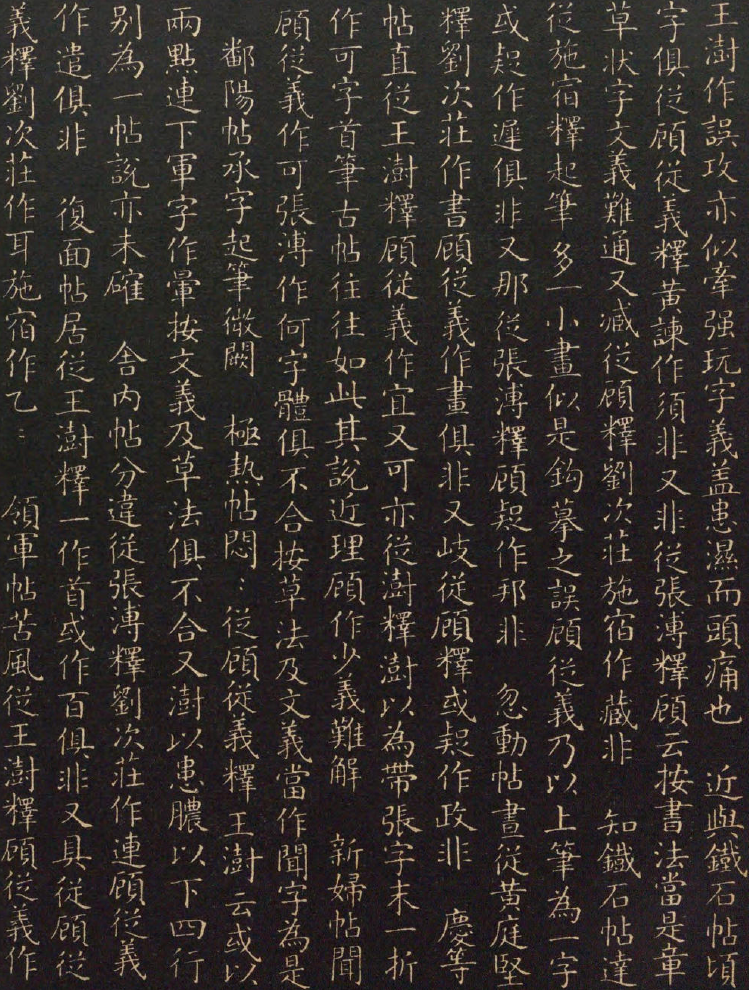 王澍作誤攻亦似牽强玩字義盖患濕而頭痛也　近與鐵石帖頃
字俱從顧從義釋黃諫作須非又非從張溥釋顧云按書法當是章
草狀字文義難通又減從顧釋劉次莊施宿作藏非　知鐵石帖達
從施宿釋起筆多一小畫似是鈎摹之誤顧從義乃以上筆為一字
或疑作遲俱非又那從張溥釋顧疑作邦非　忽動帖晝從黄庭堅
釋劉次莊作書顧從義作畫俱非又岐從顧釋或疑作政非　慶等
帖直從王澍釋顧從義作宜又可亦從澍釋澍以為帶張字末一折
作可字首筆古帖往往如此其說近理顧作少義難解　新婦帖聞
顧從義作可張溥作何字體俱不合按草法及文義當作聞字為是
鄱陽帖承字起筆微闕　極熱帖悶〻從顧從義釋王澍云或以
兩點連下軍字作暈按文義及草法俱不合又澍以患膿以下四行
别為一帖說亦未確　舍内帖分違從張溥釋劉次莊作連顧從義
作遣俱非　復面帖居從王澍釋一作首或作百俱非又具從顧從
義釋劉次莊作耳施宿作乙〻　領軍帖苦風從王澍釋顧從義作